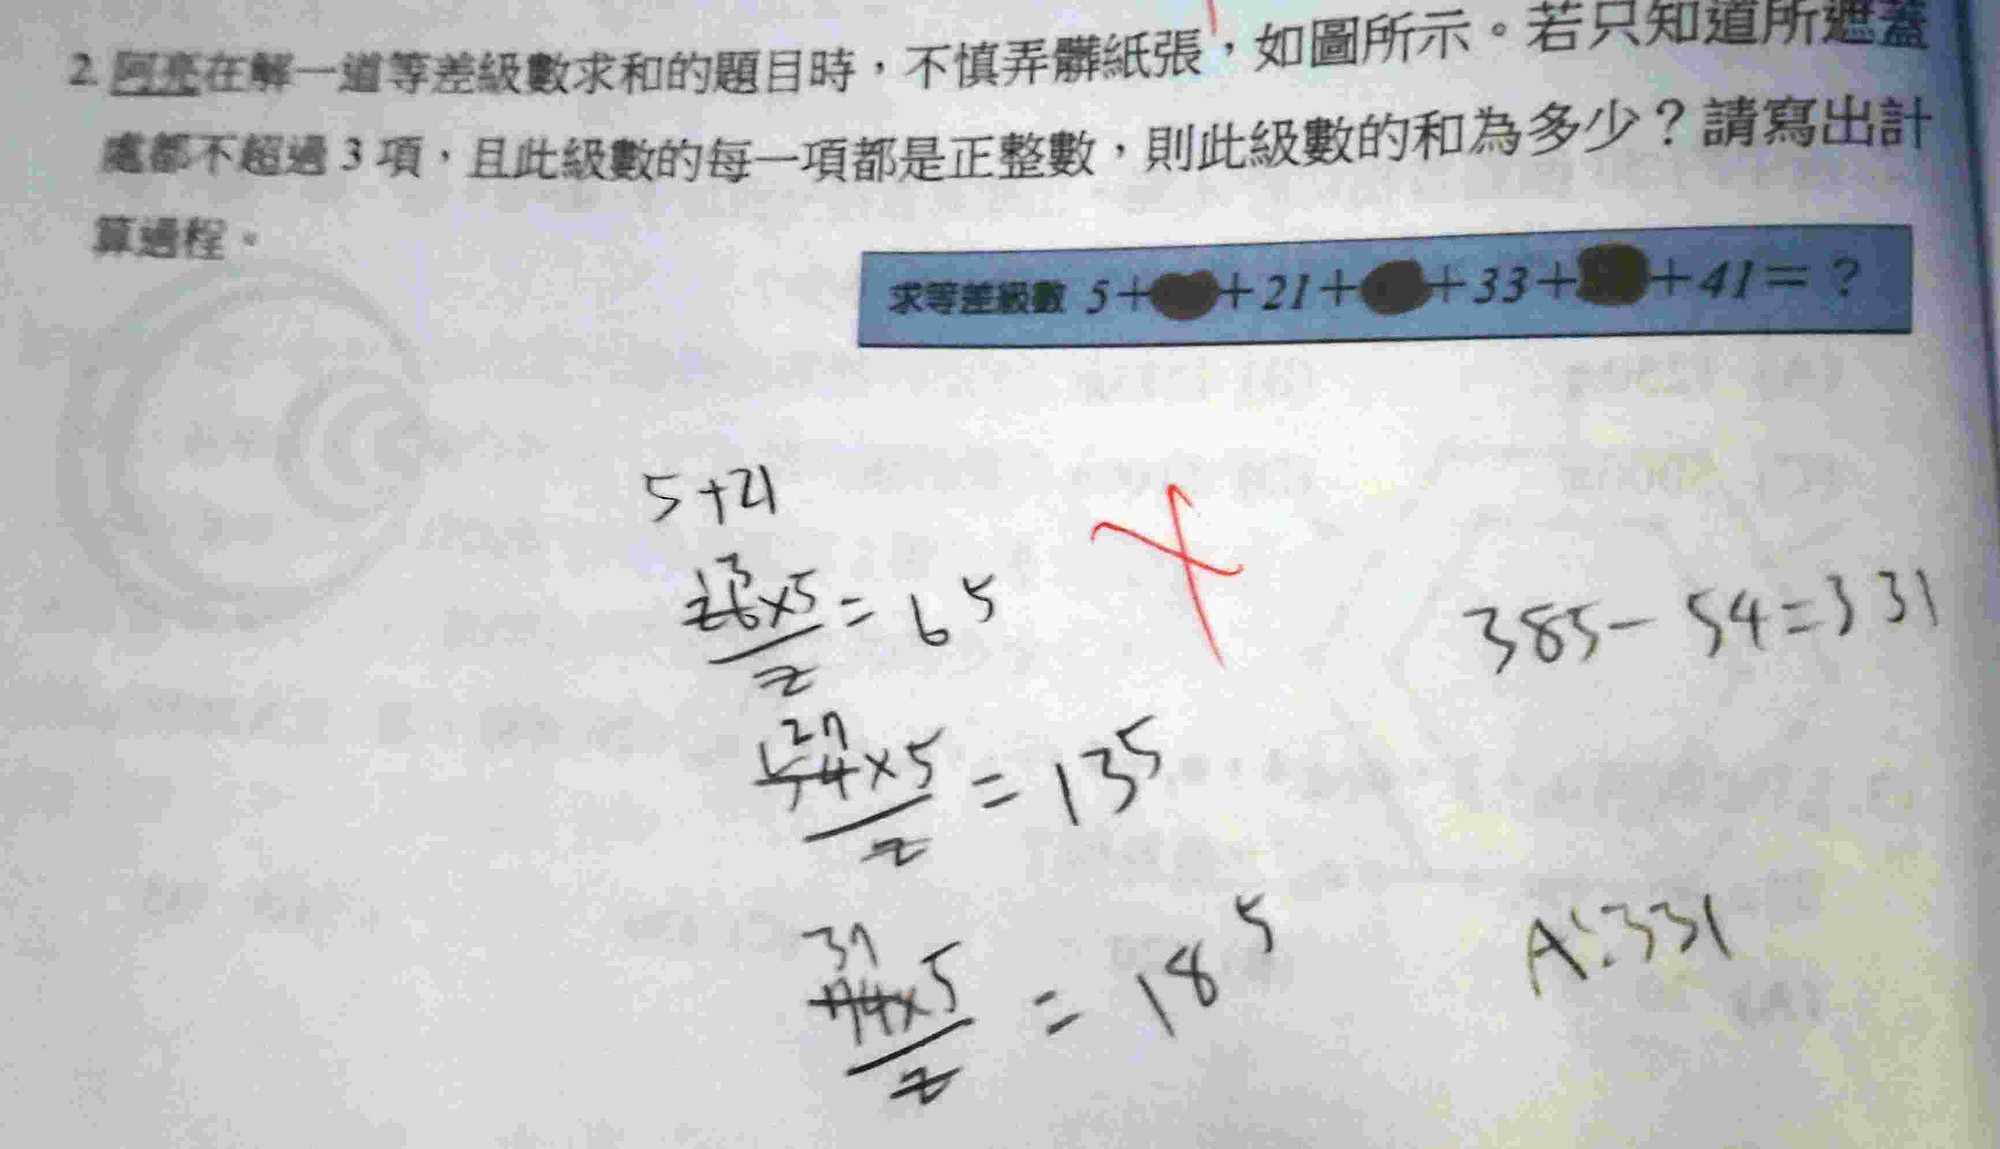 2. 阿亮在解一道等差級數求和的題目時，不慎弄髒紙張，如圖所示。若只知道所遮蓋
處都不超過3項，且此級數的每一項都是正整數，則此級數的和為多少？請寫出計
算過程。
求等差級數 5+ +21+ +33+ +41=？
5+21
13
26×5/2=65
27
54×5/2=135
37
74×5/2=185
385-54=331
A:331